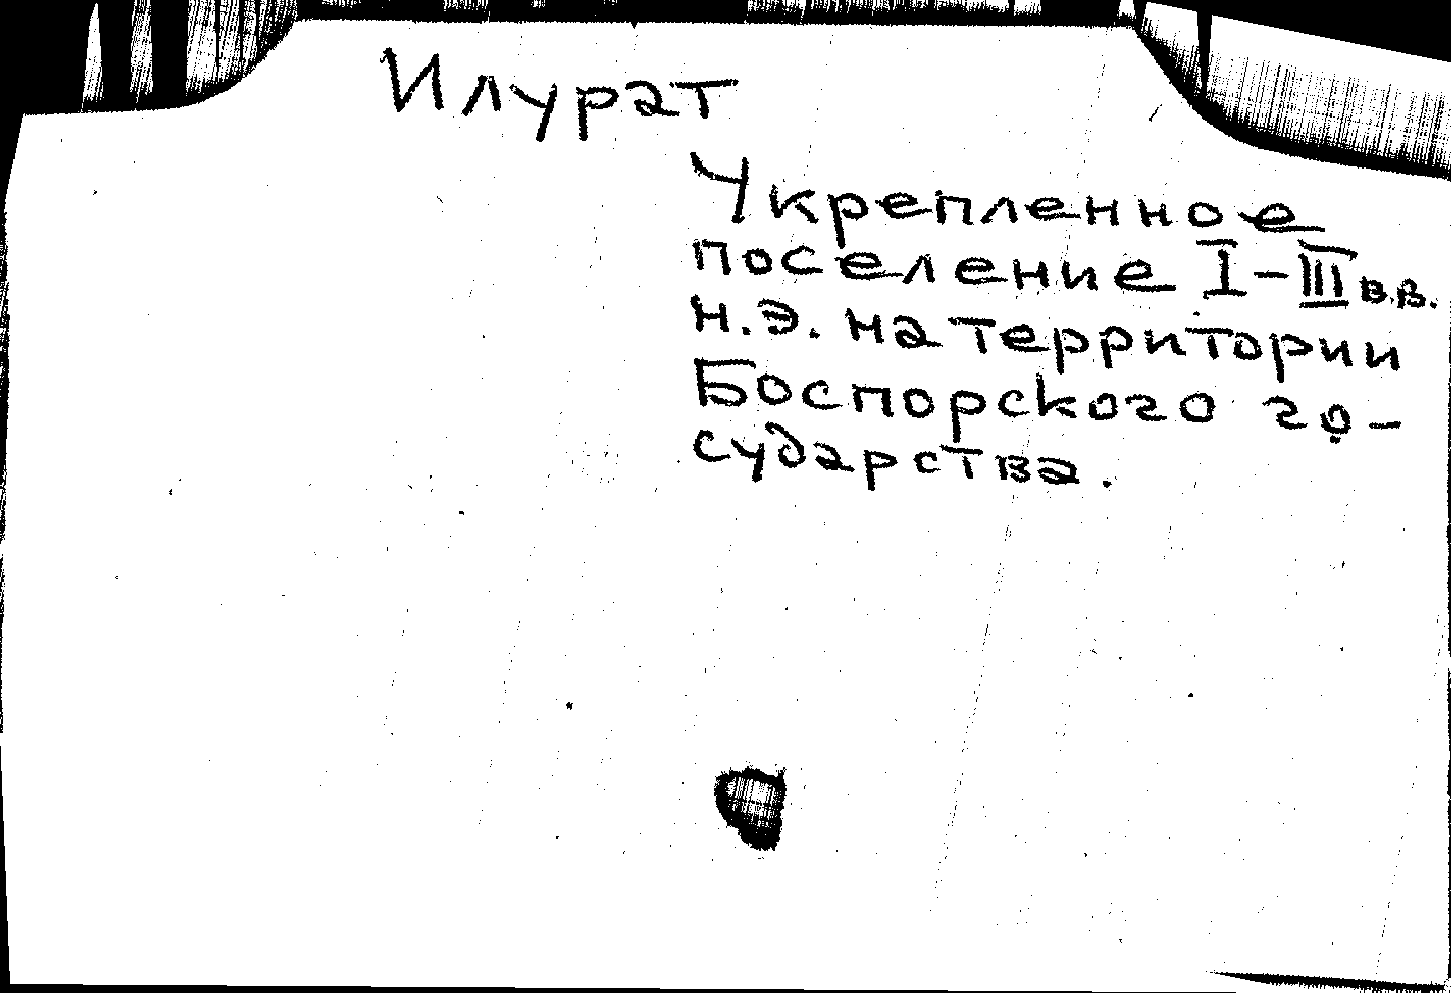 Илурат
Укрепленное
поселение I-III в.в.
н.э. на территории
Боспорского го-
сударства.